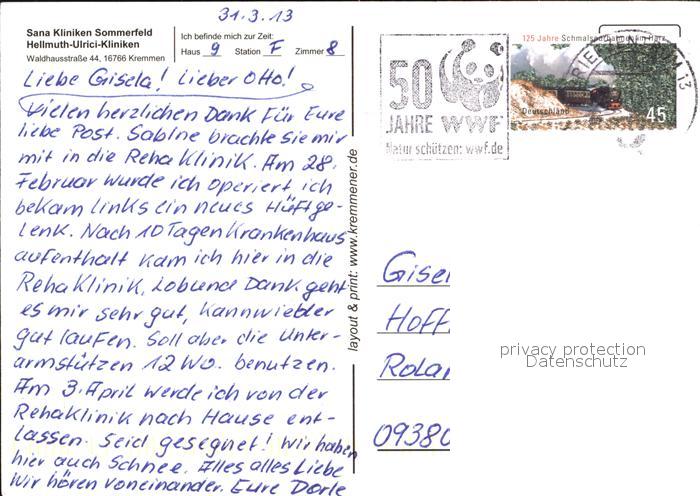 31.3.13
Sana Kliniken Sommerfeld
Hellmuth-Ulrici-Kliniken
Waldhausstraße 44, 16766 Kremmen
Ich befinde mich zur Zeit:
Haus 9 Station F Zimmer 8
Liebe Gisela! Lieber Otto!
Vielen herzlichen Dank für Eure
liebe Post. Sabine brachte sie mir
mit in die Reha Klinik. Am 28.
Februar wurde ich operiert ich
bekam links ein neues Hüftge-
lenk. Nach 10 Tagen Krankenhaus
aufenthalt kam ich hier in die
Reha Klinik, Lob und Dank geht
es mir sehr gut, kann wieder
gut laufen. Soll aber die Unter-
armstützen 12 Wo. benutzen.
Am 3. April werde ich von der
Rehaklinik nach Hause ent-
lassen. Seid gesegnet! Wir haben
hier auch Schnee. Alles alles Liebe
Wir hören voneinander. Eure Dorle
layout & print: www.kremmener.de
50
JAHRE WWF
Natur schützen: wwf.de
125 Jahre Schmalspurbahnen im Harz
Deutschland
45
13
Gisel
Hoff
Rola
09380
privacy protection
Datenschutz